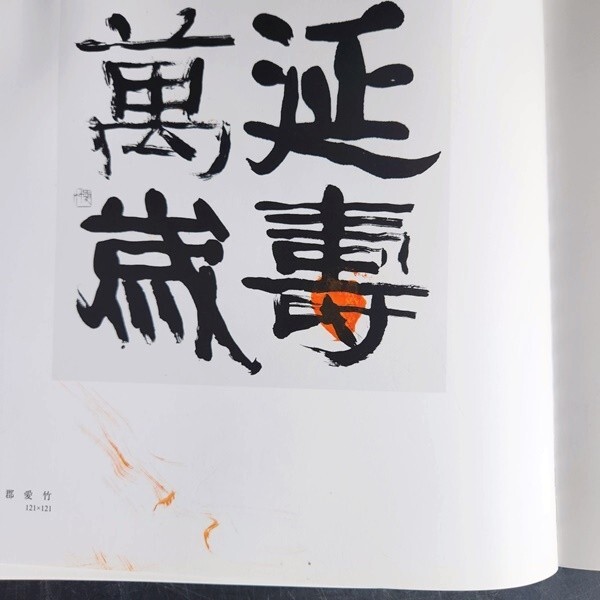 延壽
萬歲
郡 爱 竹
121×121